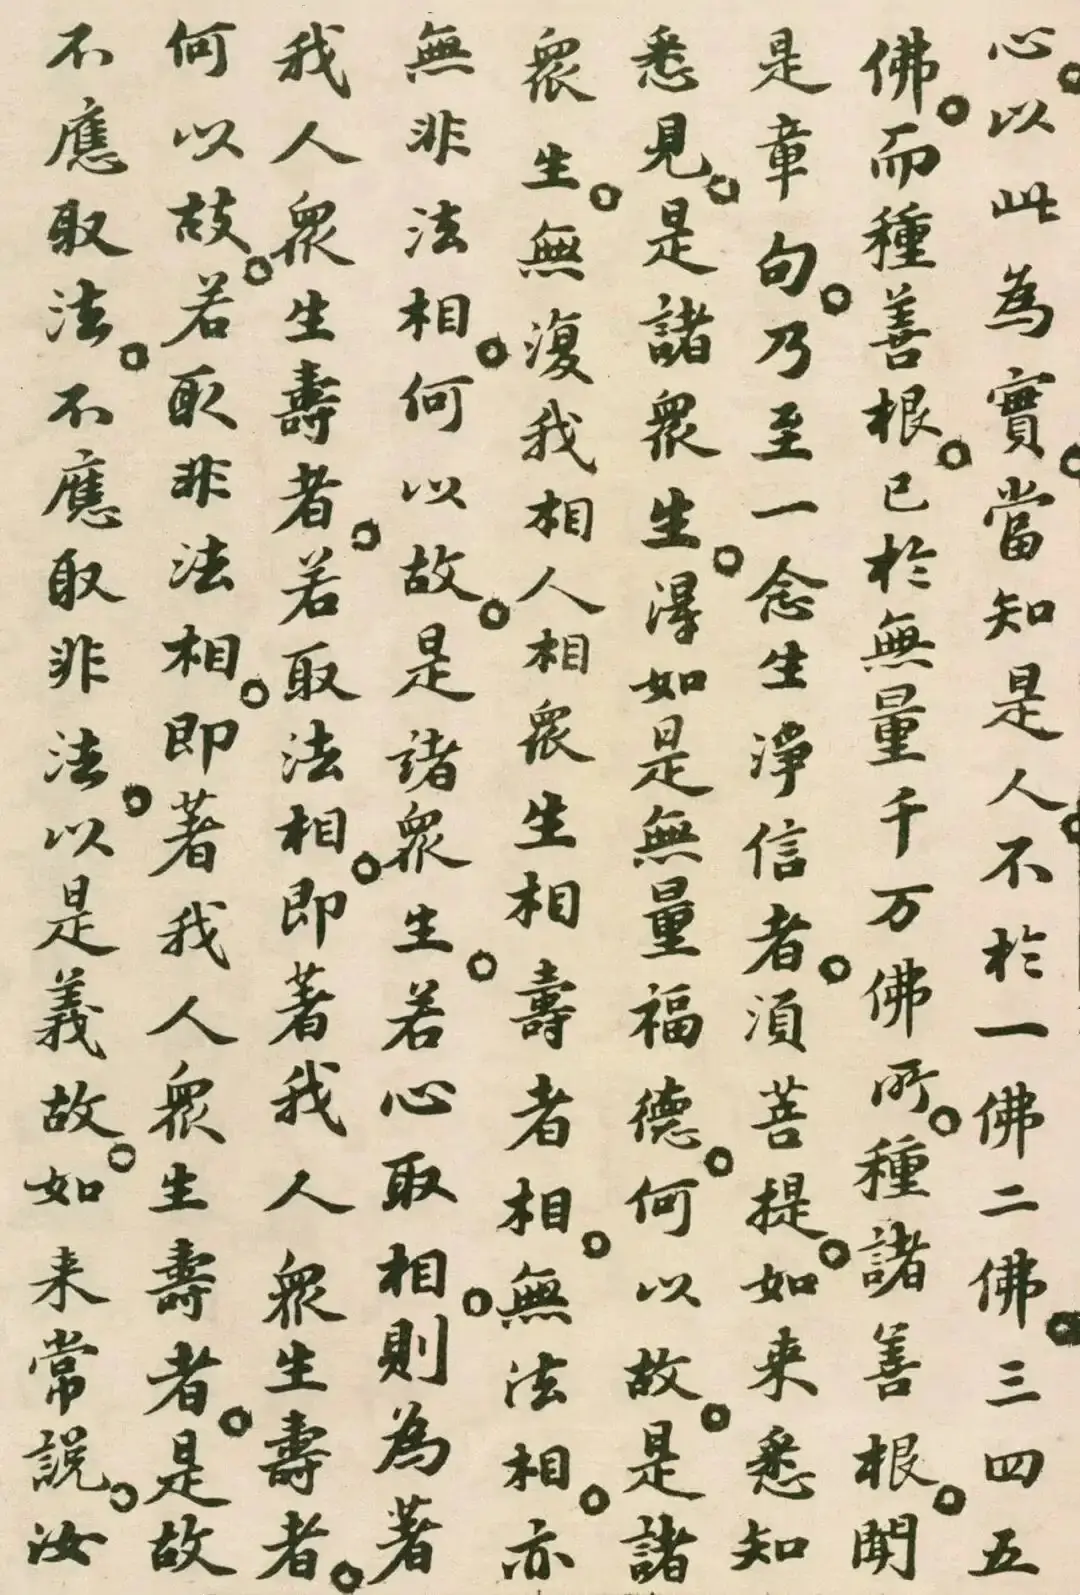 心以此為實當知是人不於一佛二佛三四五
佛而種善根已於無量千万佛所種諸善根聞
是章句乃至一念生淨信者須菩提如来悉知
悉見是諸衆生得如是無量福德何以故是諸
衆生無復我相人相衆生相壽者相無法相亦
無非法相何以故是諸衆生若心取相則為著
我人衆生壽者若取法相即著我人衆生壽者
何以故若取非法相即著我人衆生壽者是故
不應取法不應取非法以是義故如来常説汝